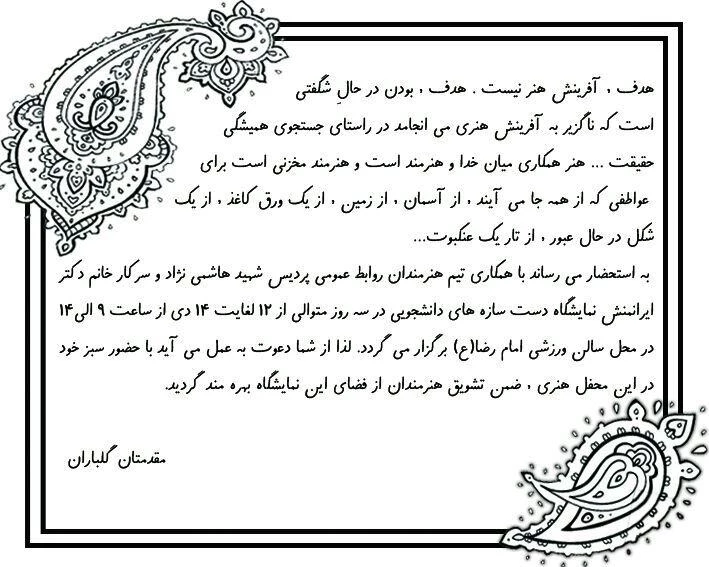 هدف , آفرینش هنر نیست . هدف , بودن در حالِ شگفتی
است که ناگزیر به آفرینش هنری می انجامد در راستای جستجوی همیشگی
حقیقت ... هنر همکاری میان خدا و هنرمند است و هنرمند مخزنی است برای
عواطفی که از همه جا می آیند , از آسمان , از زمین , از یک ورق کاغذ , از یک
شکل در حال عبور , از تار یک عنکبوت...
به استحضار می رساند با همکاری تیم هنرمندان روابط عمومی پردیس شهید هاشمی نژاد و سرکار خانم دکتر
ایرانمنش نمایشگاه دست سازه های دانشجویی در سه روز متوالی از ۱۲ لغایت ۱۴ دی از ساعت ۹ الی ۱۴
در محل سالن ورزشی امام رضا(ع) برگزار می گردد. لذا از شما دعوت به عمل می آید با حضور سبز خود
در این محفل هنری , ضمن تشویق هنرمندان از فضای این نمایشگاه بهره مند گردید.
مقدمتان گلباران